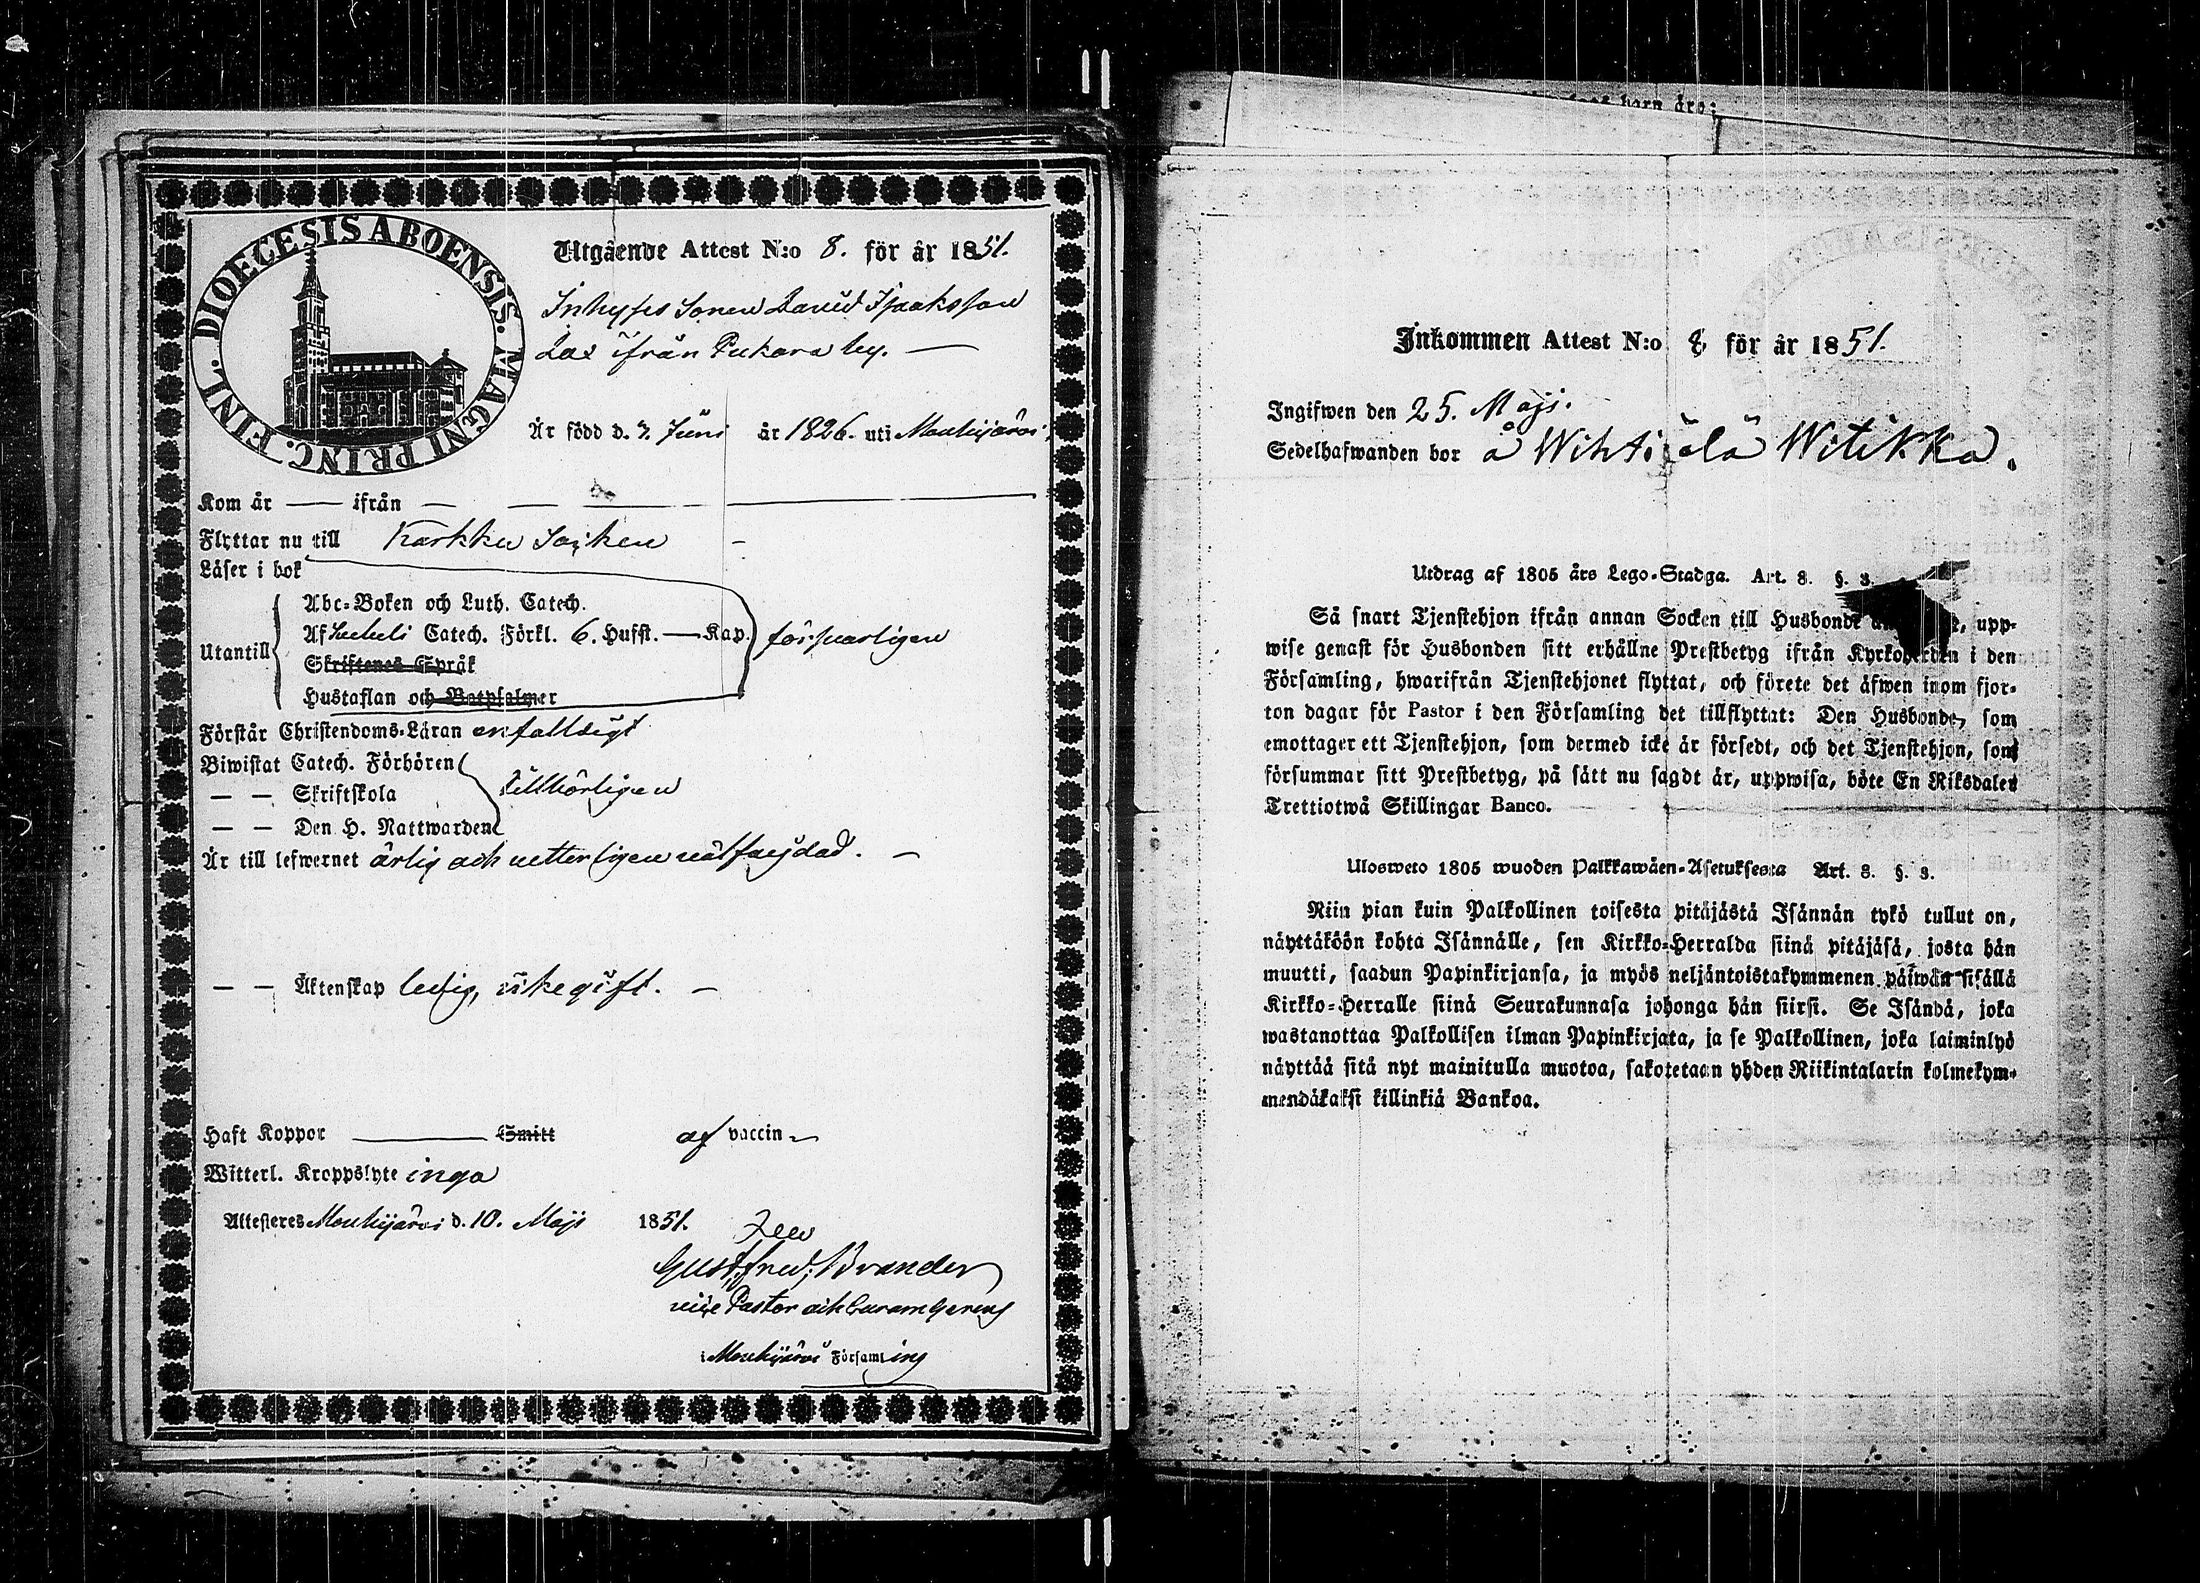 barn äro:
DIOECESIS ABOENSIS. MAGNI PRINC. FINL.
Utgående Attest N:o 8. för år 1851.
Inhyses Sonen David Isaaksson
ifrån Pukara by. —
Är född d. 7. Juni år 1826. uti Mouhijärvi
Kom år — ifrån — — —
Flyttar nu till Karkku Socken —
Läser i bok
Abc-Boken och Luth. Catech.
Utantill Af Catech. Förkl. 6. Hufst. — Kap. försvarligen
Skriftenes Språk
Hustaflan och Botpsalmer
Förstår Christendoms-Läran enfalldigt
Biwistat Catech. Förhören
— — Skriftskola tillbörligen
— — Den H. Nattwarden
Är till lefwernet ärlig och vetterligen välfräjdad. —
— — Äktenskap ledig, icke gift. —
Haft Koppor ——— Smitt af vaccin
Witterl. Kroppslyte inga
Attesteres Mouhijärvi d. 10. Maji 1851.
Gust. Fred. Brander
vice Pastor och Curam Gerens
i Mouhijärvi Församling
Inkommen Attest N:o 8 för år 1851.
Ingifwen den 25. Maji.
Sedelhafwanden bor å Wihtiälä Witikka.
Utdrag af 1805 års Lego-Stadga. Art. 8. §. 3.
Så snart Tjenstehjon ifrån annan Socken till Husbonde , upp-
wise genast för Husbonden sitt erhållne Prestbetyg ifrån Kyrkoherden i den
Församling, hwarifrån Tjenstehjonet flyttat, och förete det äfwen inom fjor-
ton dagar för Pastor i den Församling det tillflyttat: Den Husbonde, som
emottager ett Tjenstehjon, som dermed icke är försedt, och det Tjenstehjon, som
försummar sitt Prestbetyg, på sätt nu sagdt är, uppwisa, böte En Riksdaler
Trettiotwå Skillingar Banco.
Ulosweto 1805 wuoden Palkkawäen-Asetuksesta Art. 8. §. 3.
Niin pian kuin Palkollinen toisesta pitäjästä Isännän tykö tullut on,
näyttäköön kohta Isännälle, sen Kirkko-Herralda siinä pitäjäsä, josta hän
muutti, saadun Papinkirjansa, ja myös neljäntoistakymmenen päiwän sisällä
Kirkko-Herralle siinä Seurakunnasa johonga hän siirsi. Se Isändä, joka
wastanottaa Palkollisen ilman Papinkirjata, ja se Palkollinen, joka laiminlyö
näyttää sitä nyt mainitulla muotoa, sakotetaan yhden Riikintalarin kolmekym-
mendäkaksi killinkiä Bankoa.